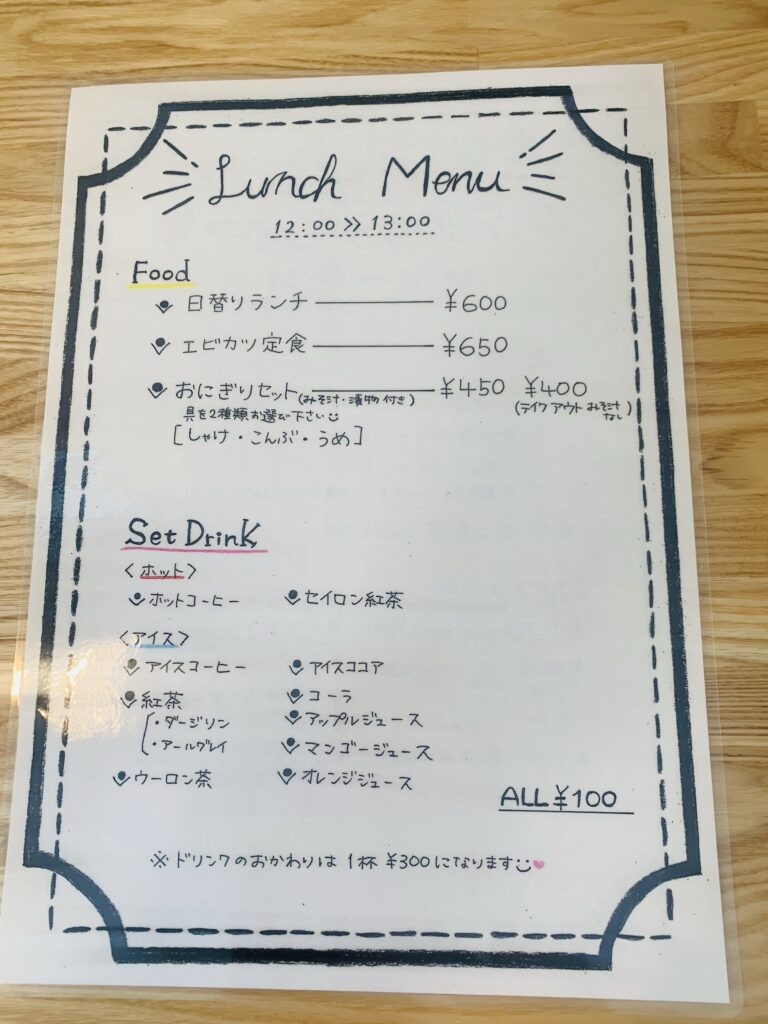 Lunch Menu
12:00 >> 13:00
Food
日替りランチ ¥600
エビカツ定食 ¥650
おにぎりセット(みそ汁・漬物付き) ¥450 ¥400
具を2種類お選び下さい (テイクアウト みそ汁なし)
[しゃけ・こんぶ・うめ]
Set Drink
<ホット>
ホットコーヒー セイロン紅茶
<アイス>
アイスコーヒー アイスココア
紅茶 コーラ
・ダージリン アップルジュース
・アールグレイ マンゴージュース
ウーロン茶 オレンジジュース
ALL ¥100
※ドリンクのおかわりは1杯¥300になります